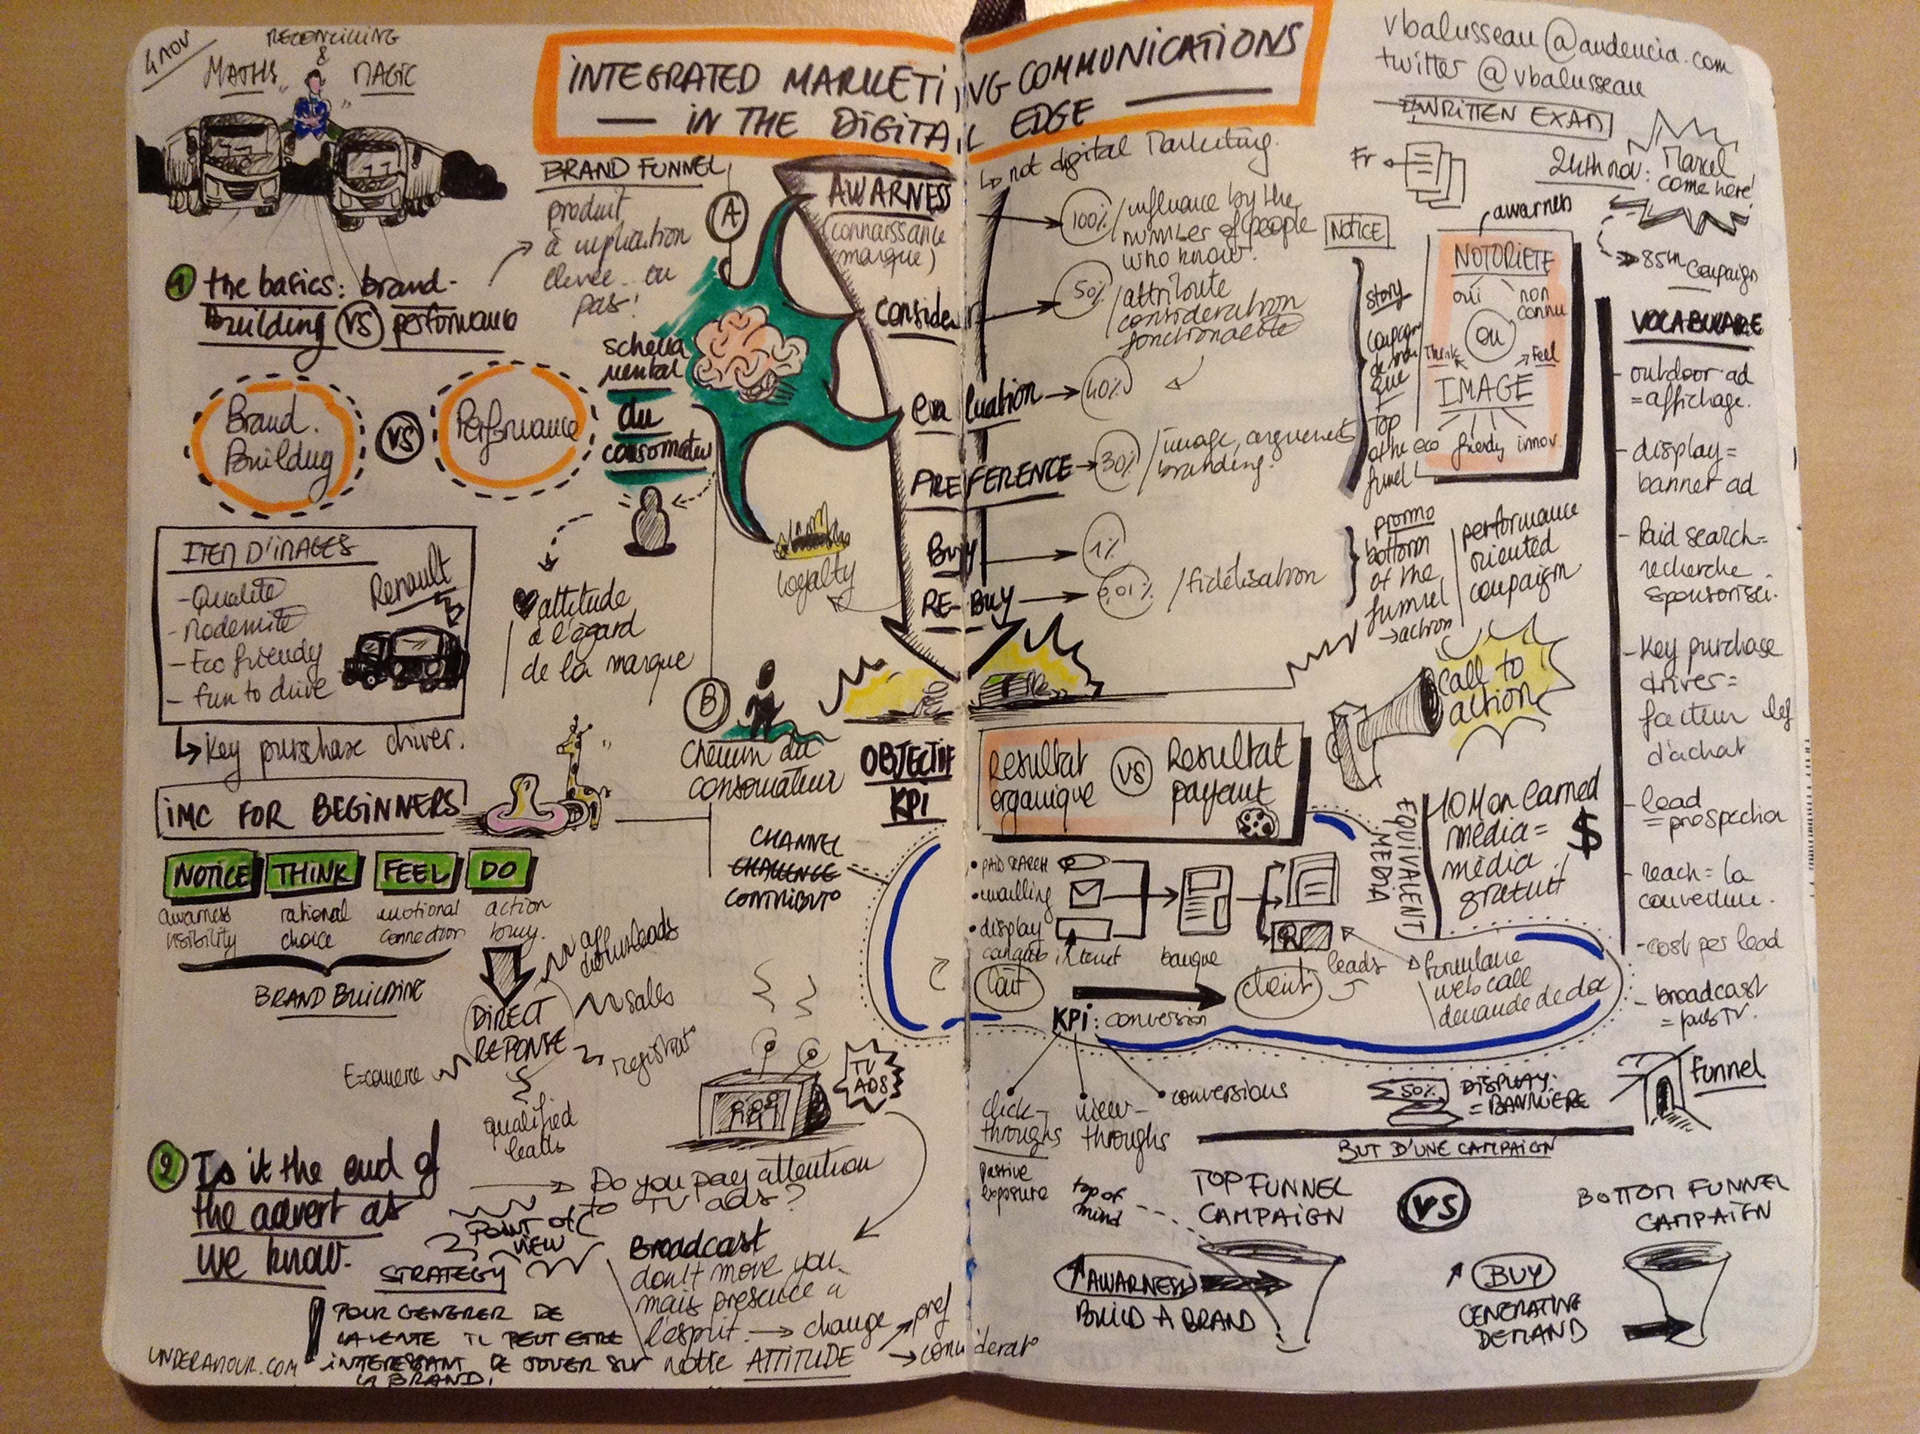 4 NOV
RECONCILING
&
MATHS MAGIC
INTEGRATED MARKETING COMMUNICATIONS
— IN THE DIGITAL EDGE —
↳ not digital Marketing.
vbalusseau@audencia.com
twitter @vbalusseau
→ WRITTEN EXAM
Fr
24th nov:
Marcel
come here!
85m campaign
1 the basics: brand-
building VS performance
BRAND FUNNEL
produit
à implication
élevée ou
pas!
A
schéma
mental
du
consomateur
Brand
Building
VS
Performance
ITEM D'IMAGES
- Qualité
- Modernité
- Eco friendy
- fun to drive
Renault
↳ Key purchase driver.
attitude
à l'égard
de la marque
loyalty
AWARNESS
(connaissance
marque)
consider
evaluation
PREFERENCE
Buy
RE-BUY
100% / influence by the
number of people
who know.
50% / attribute
consideration
fonctionnalité
40%
30% / image, arguments
branding.
1%
0,01% / fidélisation
NOTICE
story
top
of the
funnel
awarness
NOTORIETE
oui non
connu
OU
Think Feel
IMAGE
eco friendy innov.
promo
bottom
of the
funnel
→ action
performance
oriented
campaign
Call to
action
VOCABULARE
- outdoor ad
= affichage.
- display =
banner ad
- Paid search =
recherche
sponsorisé.
- Key purchase
driver =
facteur clef
d'achat
- lead
= prospection
- reach = la
couverture.
- cost per lead
- broadcast
= pub TV.
B
Chemin du
consomateur
OBJECTIF
KPI
IMC FOR BEGINNERS
NOTICE THINK FEEL DO
awarness
visibility
rational
choice
emotional
connection
action
buy.
BRAND BUILDING
DIRECT
REPONSE
app
downloads
sales
E-comerce
qualified
leads
CHANNEL
CHALLENGE
CONTRIBUTO
Resultat
organique
VS
Resultat
payant
EQUIVALENT
MEDIA
10M on earned
média =
média
gratuit
$
• PAID SEARCH
• mailling
• display
internet
banque
leads
formulaire
web call
demande de doc
cout
client
KPI: conversion
click-
throughs
view-
throughs
conversions
passive
exposure
TV
ADS
2 Is it the end of
the advert as
we know.
→ Do you pay attention
to TV ads?
POINT OF
VIEW
STRATEGY
POUR GENERER DE
LA VENTE IL PEUT ETRE
INTERESSANT DE JOUER SUR
LA BRAND!
Broadcast
don't move you
mais présence à
l'esprit. → change
notre ATTITUDE
pref
→ considerat°
UNDERAMOUR.COM
50%
DISPLAY
= BANNIERE
Funnel
BUT D'UNE CAMPAIGN
top of
mind
TOP FUNNEL
CAMPAIGN
VS
BOTTOM FUNNEL
CAMPAIGN
AWARNESS
BUILD A BRAND
BUY
GENERATING
DEMAND